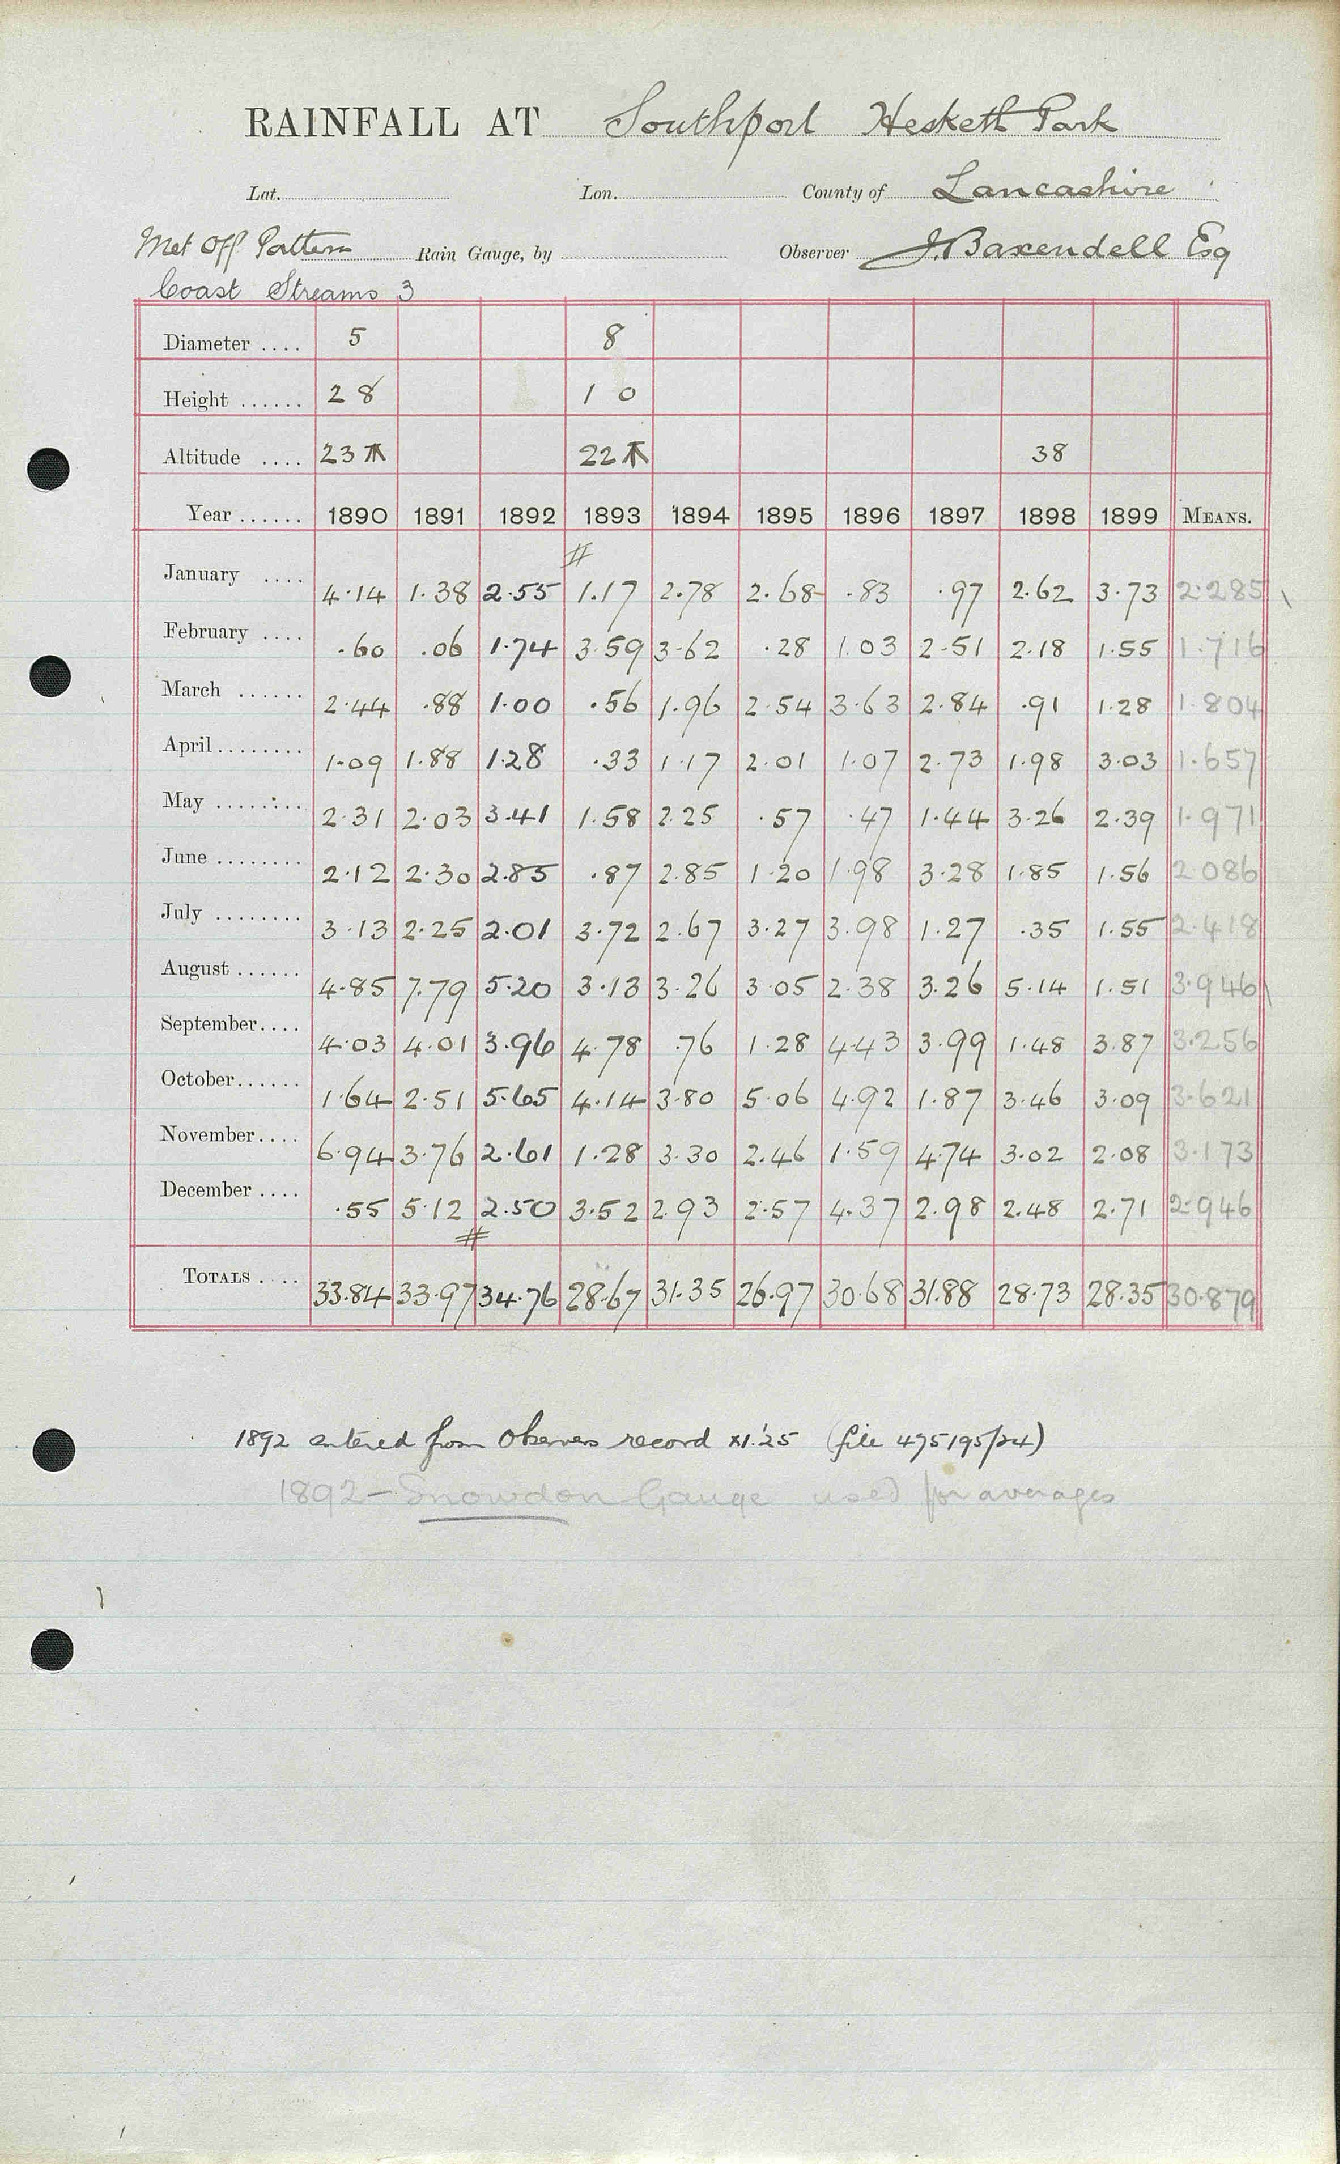 RAINFALL AT Southport Hesketh Park
Lat. Lon. County of Lancashire
Met Off Pattern Rain Gauge, by Observer J. Baxendell Esq
Coast Streams 3
Diameter .... 5 8
Height ...... 2 8 1 0
Altitude .... 23 22 38
Year ...... 1890 1891 1892 1893 1894 1895 1896 1897 1898 1899 MEANS.
#
January .... 4.14 1.38 2.55 1.17 2.78 2.68 .83 .97 2.62 3.73 2.285
February .... .60 .06 1.74 3.59 3.62 .28 1.03 2.51 2.18 1.55 1.716
March ...... 2.44 .88 1.00 .56 1.96 2.54 3.63 2.84 .91 1.28 1.804
April ........ 1.09 1.88 1.28 .33 1.17 2.01 1.07 2.73 1.98 3.03 1.657
May ........ 2.31 2.03 3.41 1.58 2.25 .57 .47 1.44 3.26 2.39 1.971
June ........ 2.12 2.30 2.85 .87 2.85 1.20 1.98 3.28 1.85 1.56 2.086
July ........ 3.13 2.25 2.01 3.72 2.67 3.27 3.98 1.27 .35 1.55 2.418
August ...... 4.85 7.79 5.20 3.13 3.26 3.05 2.38 3.26 5.14 1.51 3.946
September .... 4.03 4.01 3.96 4.78 .76 1.28 4.43 3.99 1.48 3.87 3.256
October ...... 1.64 2.51 5.65 4.14 3.80 5.06 4.92 1.87 3.46 3.09 3.621
November .... 6.94 3.76 2.61 1.28 3.30 2.46 1.59 4.74 3.02 2.08 3.173
December .... .55 5.12 2.50 3.52 2.93 2.57 4.37 2.98 2.48 2.71 2.946
#
TOTALS .... 33.84 33.97 34.76 28.67 31.35 26.97 30.68 31.88 28.73 28.35 30.879
1892 entered from Observers record x1.25 (file 475195/24)
1892 – Snowdon Gauge used for averages